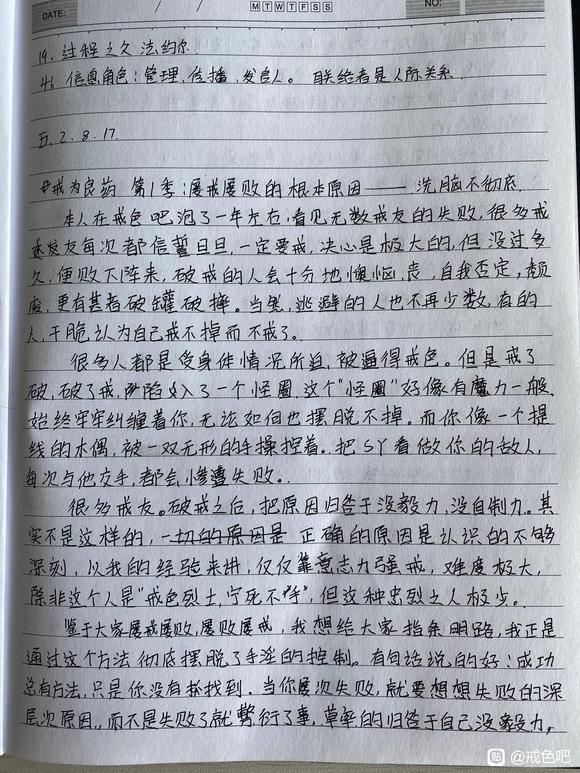 DATE: / / M T W T F S S NO:
19. 过程之父 法约尔
46 信息角色：管理，传播，发言人。 联络者是人际关系
五. 2. 8. 17.
戒为良药 第1季：屡戒屡败的根本原因——洗脑不彻底.
本人在戒色吧泡了一年左右，看见无数戒友的失败，很多戒
友每次都信誓旦旦，一定要戒，决心是极大的，但没过多
久，便败下阵来，破戒的人会十分地懊恼，自我否定，颓
废，更有甚者破罐破摔。当然，逃避的人也不再少数，有的
人，干脆认为自己戒不掉而不戒了。
很多人都是受身体情况所迫，被逼得戒色。但是戒了
破，破了戒，陷入了一个怪圈，这个"怪圈"好像有魔力一般，
始终牢牢纠缠着你，无论如何也摆脱不掉。而你像一个提
线的木偶，被一双无形的手操控着。把SY看做你的敌人，
每次与他交手，都会惨遭失败。
很多戒友。破戒之后，把原因归咎于没毅力，没自制力。其
实不是这样的，一切的原因是 正确的原因是认识的不够
深刻，以我的经验来讲，仅仅靠意志力强戒，难度极大，
除非这个人是"戒色烈士，宁死不手"，但这种忠烈之人极少。
鉴于大家屡戒屡败，屡败屡戒，我想给大家指条明路，我正是
通过这个方法彻底摆脱了手淫的控制。有句话说的好：成功
总有方法，只是你没有找到.当你屡次失败，就要想想失败的深
层次原因，而不是失败了就敷衍了事，草率的归咎于自己没毅力，
贴 @戒色吧